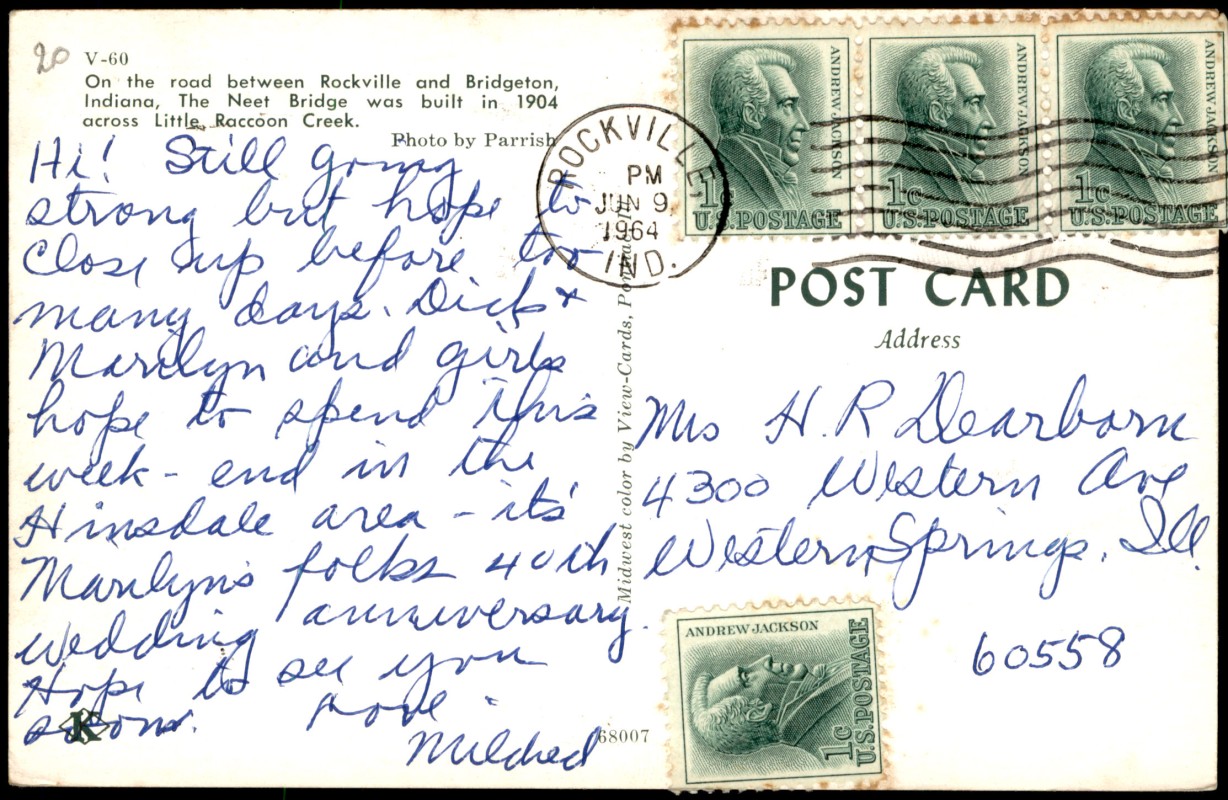 20
V-60
On the road between Rockville and Bridgeton,
Indiana, The Neet Bridge was built in 1904
across Little Raccoon Creek.
Photo by Parrish
Hi! Still going
strong but hope to
close up before too
many days. Dick &
Marilyn and girls
hope to spend this
week-end in the
Hinsdale area - it's
Marilyn's folks 40th
wedding anniversary.
Hope to see you
soon. Love -
Mildred
K
68007
Midwest color by View-Cards,
ROCKVILLE
PM
JUN 9
1964
IND.
ANDREW JACKSON
1c
U.S. POSTAGE
ANDREW JACKSON
1c
U.S. POSTAGE
ANDREW JACKSON
1c
U.S. POSTAGE
POST CARD
Address
Mrs H. R Dearborn
4300 Western Ave
Western Springs, Ill.
60558
ANDREW JACKSON
1c
U.S. POSTAGE